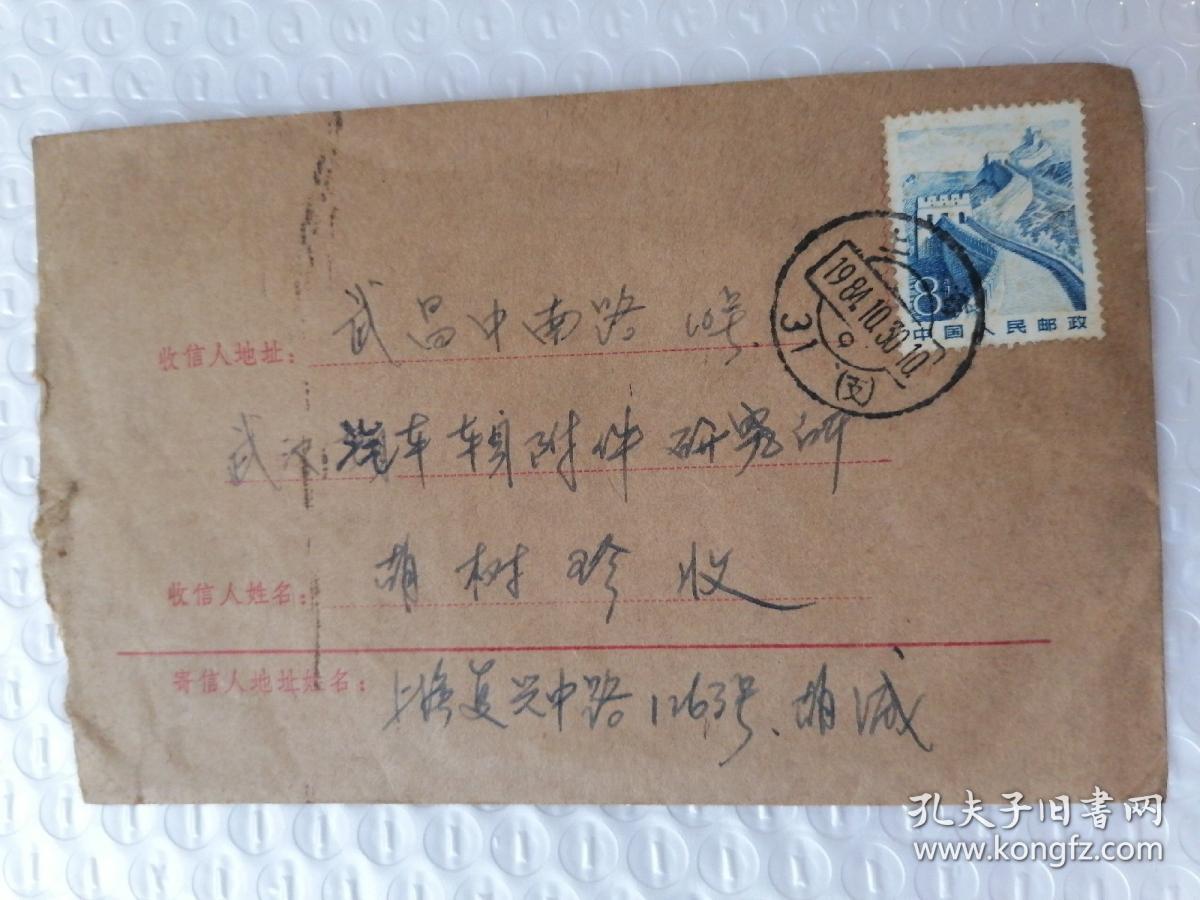 8分
中国人民邮政
上海
1984.10.30.10
31 (支)
收信人地址: 武昌中南路10号
武汉 汽车车辆附件研究所
收信人姓名: 胡树珍 收
寄信人地址姓名: 上海复兴中路1263号、胡诚
孔夫子旧书网
www.kongfz.com